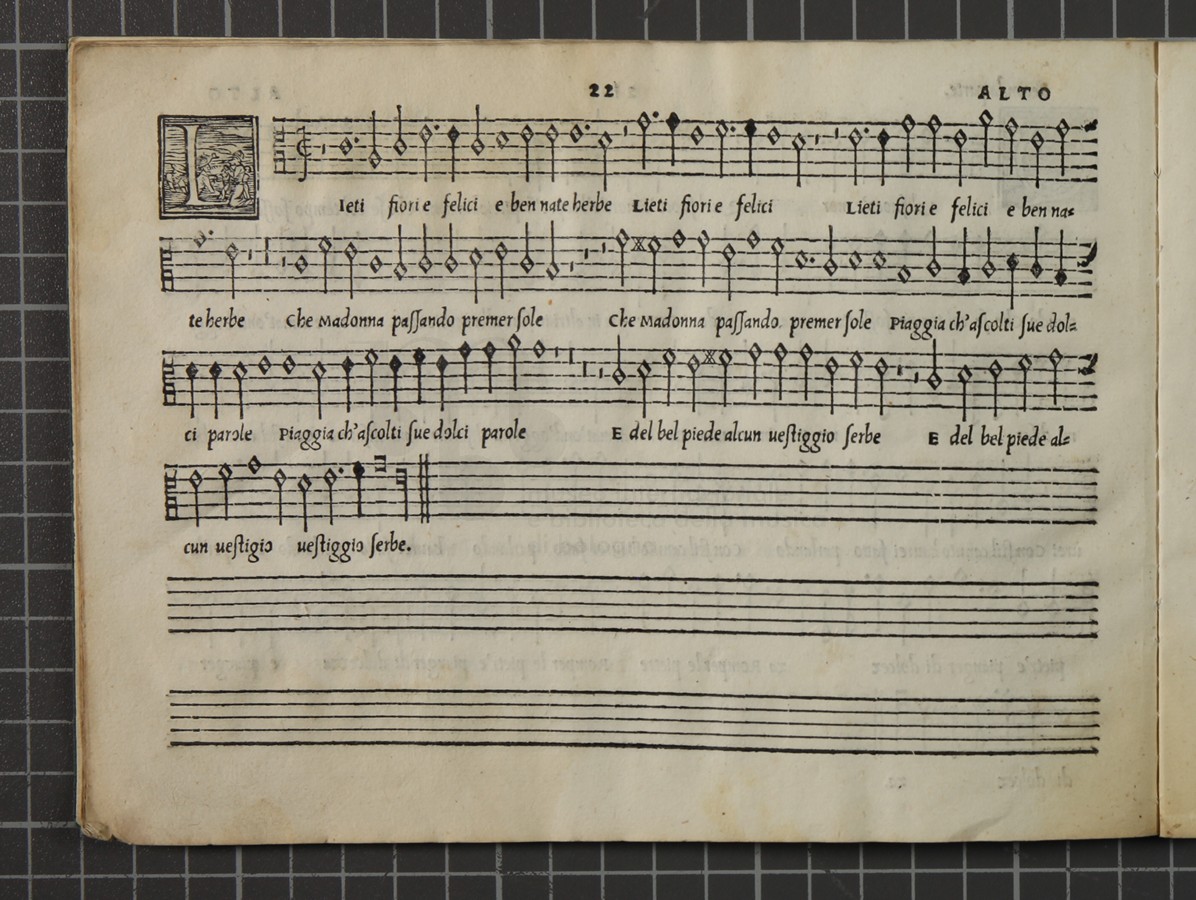 22
ALTO
LIeti fiori e felici e ben nate herbe Lieti fiori e felici Lieti fiori e felici e ben na=
te herbe Che Madonna paſſando premer ſole Che Madonna paſſando premer ſole Piaggia ch'aſcolti ſue dol=
ci parole Piaggia ch'aſcolti ſue dolci parole E del bel piede alcun ueſtiggio ſerbe E del bel piede al=
cun ueſtigio ueſtiggio ſerbe.